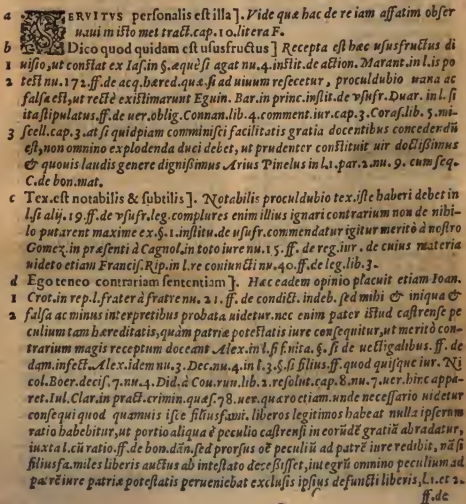 a SERVITVS personalis est illa]. Vide quæ hac de re iam affatim obser
uaui in isto met tract. cap. 10. litera F.
b Dico quod quidam est ususfructus] Recepta est hæc ususfructus di
1 uisio, ut constat ex Ias. in §. æque si agat nu. 4. instit. de action. Marant. in l. is po
2 test nu. 172. ff. de acq. hæred. quæ si ad uiuum resecetur, proculdubio uana ac
falsa est, ut recte existimarunt Eguin. Bar. in princ. instit. de vsufr. Duar. in l. si
ita stipulatus. ff. de uer. oblig. Connan. lib. 4. comment. iur. cap. 3. Coras. lib. 5. mi-
3 scell. cap. 3. at si quidpiam comminisci facilitatis gratia docentibus concedendũ
est, non omnino explodenda duci debet, ut prudenter constituit uir doctissimus
& quouis laudis genere dignissimus Arius Pinelus in l. 1. par. 2. nu. 9. cum seq.
C. de bon. mat.
c Tex. est notabilis & subtilis]. Notabilis proculdubio tex. iste haberi debet in
l. si alij. 19. ff. de vsufr. leg. complures enim illius ignari contrarium non de nihi-
lo putarent maxime ex §. 1. institu. de usufr. commendatur igitur merito à nostro
Gomez. in præsenti à Cagnol. in toto iure nu. 15. ff. de reg. iur. de cuius materia
uideto etiam Francis. Rip. in l. re coniuncti nu. 40. ff. de leg. lib. 3.
d Ego teneo contrariam sententiam]. Hæc eadem opinio placuit etiam Ioan.
1 Crot. in rep. l. frater à fratre nu. 21. ff. de condict. indeb. sed mihi & iniqua &
2 falsa ac minus interpretibus probata uidetur. nec enim pater istud castrense pe
culium tam hæreditatis, quàm patriæ potestatis iure consequitur, ut merito con-
trarium magis receptum doceant Alex. in l. si f. nita. §. si de uectigalibus. ff. de
dam. infect. Alex. idem nu. 3. Dec. nu. 4. in l. 3. §. si filius. ff. quod quisque iur. Ni
col. Boer. decis. 7. nu. 4. Did. à Cou. run. lib. 2. resolut. cap. 8. nu. 7. uer. hinc appa-
ret. Iul. Clar. in pract. crimin. quæs. 78. uer. quæro etiam. unde necessario uidetur
consequi quod quamuis isce filiusfami. liberos legitimos habeat nulla ipsorum
ratio habebitur, ut portio aliqua è peculio castrensi in eorũdẽ gratiã abradatur,
iuxta l. cũ ratio. ff. de bon. dãn. sed prorsus oẽ peculiũ ad patrẽ iure redibit, nã si
filiusfa. miles liberis auctus ab intestato decessisset, integrũ omnino peculium ad
patrẽ iure patriæ potestatis perueniebat exclusis ipsius defuncti liberis, l. 1. et 2.
ff. de